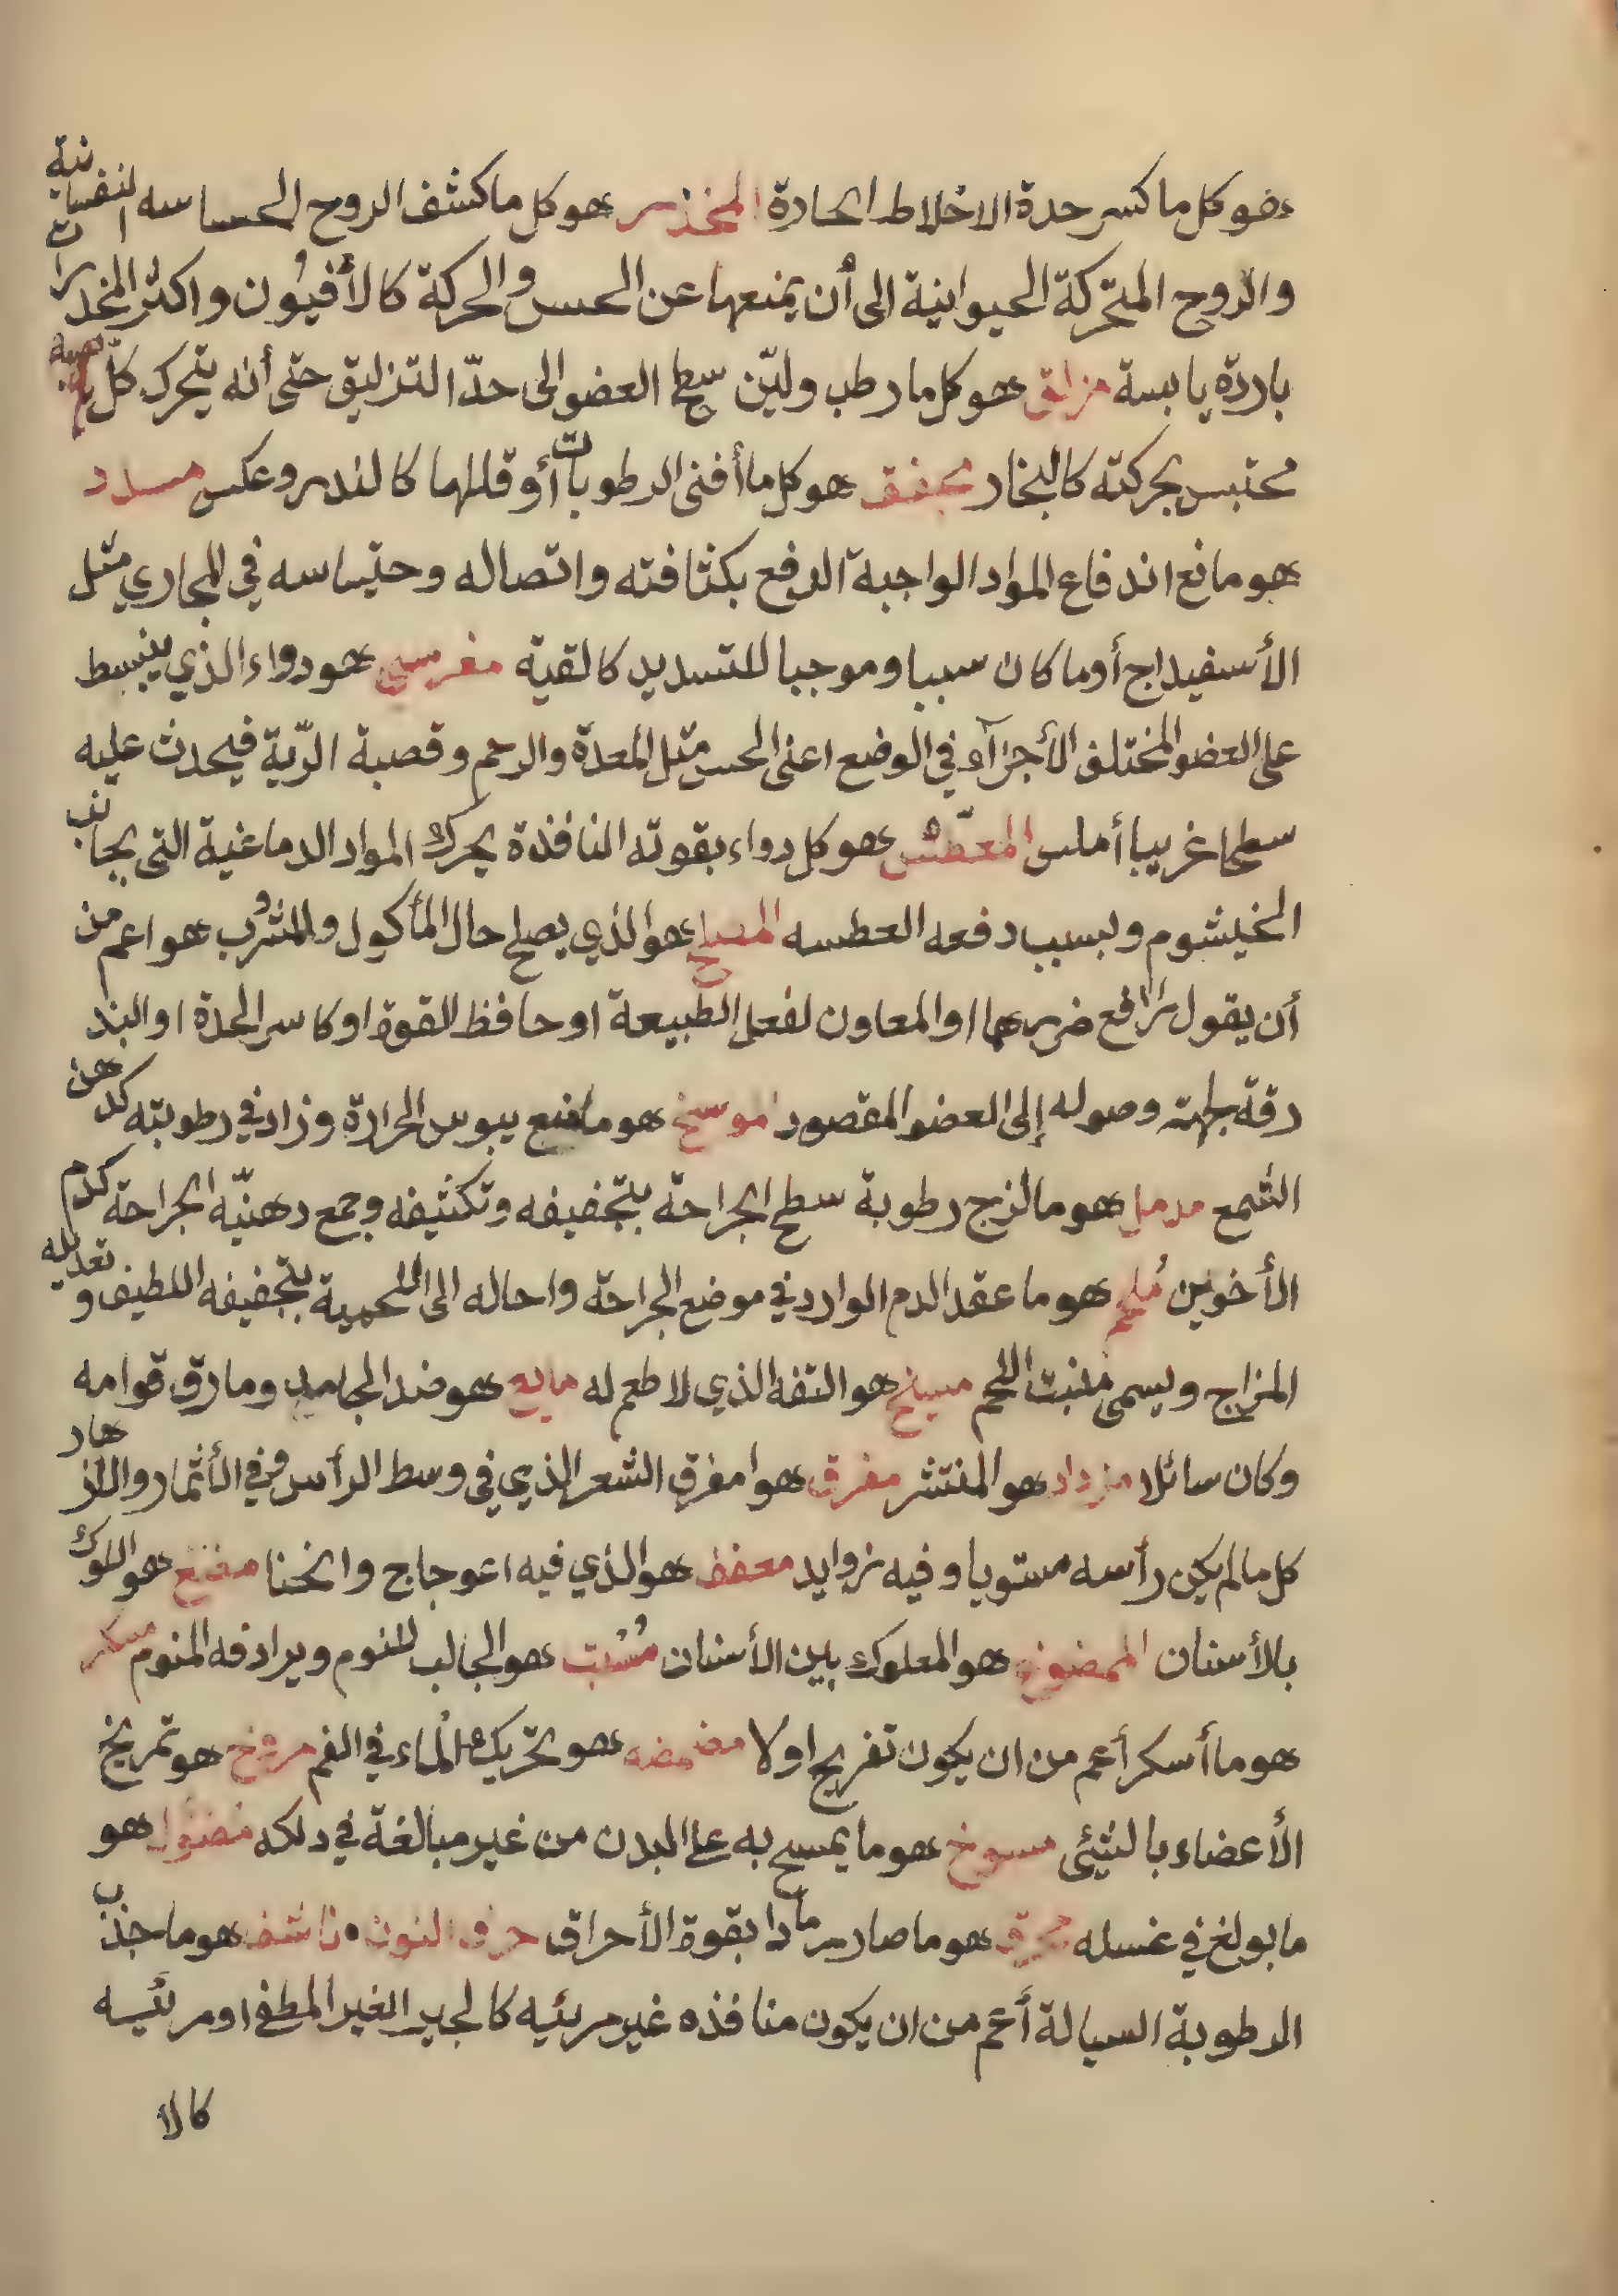 هو كل ما كسر حدة الاخلاط الحادة المخذر هو كل ما كشف الروح الحساسه النفسانية
والروح المتحركة الحيوانية الى أن يمنعها عن الحس والحركة كالأفيون واكثر المخدرات
باردة يابسة مزلق هو كل ما رطب وليّن سطح العضو الى حدّ التزليق حتى أنه يتحرك كلّ
محتبس بحركته كالبخار مجفف هو كل ما أفنى الرطوبات أو قللها كالندر وعكس مسدد
هو مانع اندفاع المواد الواجبة الدفع بكثافته واتصاله وحتباسه في المجاري مثل
الأسفيداج أو ما كان سببا وموجبا للتسديد كالقية مغرسي هو دواء الذي ينبسط
على العضو المختلف الأجزآء في الوضع اعنى الحس مثل المعدة والرحم وقصبة الرّية فيحدث عليه
سطحا غريبا أملس المعطّش هو كل دواء بقوته النافذة يحرك المواد الدماغية التى بجانب
الخيشوم وبسبب دفعه العطسه المصلح هو الذي يصلح حال المأكول والمشرب هو اعم من
أن يقول رافع ضررهما او المعاون لفعل الطبيعة او حافظ القوة او كاسر الحدة او البذ
رقة بلهته وصوله إلى العضو المقصود موسخ هو ما منع يبوس الحرارة وزاد في رطوبته كدهن
الشمع مدمل هو ما لزج رطوبة سطح الجراحة بتجفيفه وتكثيفه وجمع دهنيّه الجراحة كدم
الأخوين مُلحم هو ما عقد الدم الوارد في موضع الجراحة واحاله الى اللحمية بتجفيفه اللطيف وتعديله
المزاج ويسمى منبت اللحم مسيخ هو التفه الذي لا طعم له مايع هو ضد الجامد وما رق قوامه
وكان سائلا مزداد هو المنتثر مفرق هو امفرق الشعر الذي في وسط الرأس وفي الأثمار والازهار
كل ما لم يكن رأسه مستويا وفيه زوايد معفف هو الذي فيه اعوجاج وانحنا مضغ هو اللوك
بالأسنان الممضوغ هو المعلوك بين الأسنان مُسْبت هو الجالب للنوم ويرادفه المنوم مسكر
هو ما أسكر أعم من ان يكون تفريح او لا مضمضه هو تحريك الماء في الفم مروخ هو تمريخ
الأعضاء بالشيئ مسوخ هو ما يمسح به على البدن من غير مبالغة في دلكه مغسول هو
ما بولغ في غسله محرق هو ما صار رمادا بقوة الأحراق حرف النون ناشف هو ما جذب
الرطوبة السيالة أعم من ان يكون منافذه غير مرئيه كالجير الغير المطفى او مرئيه
كالا